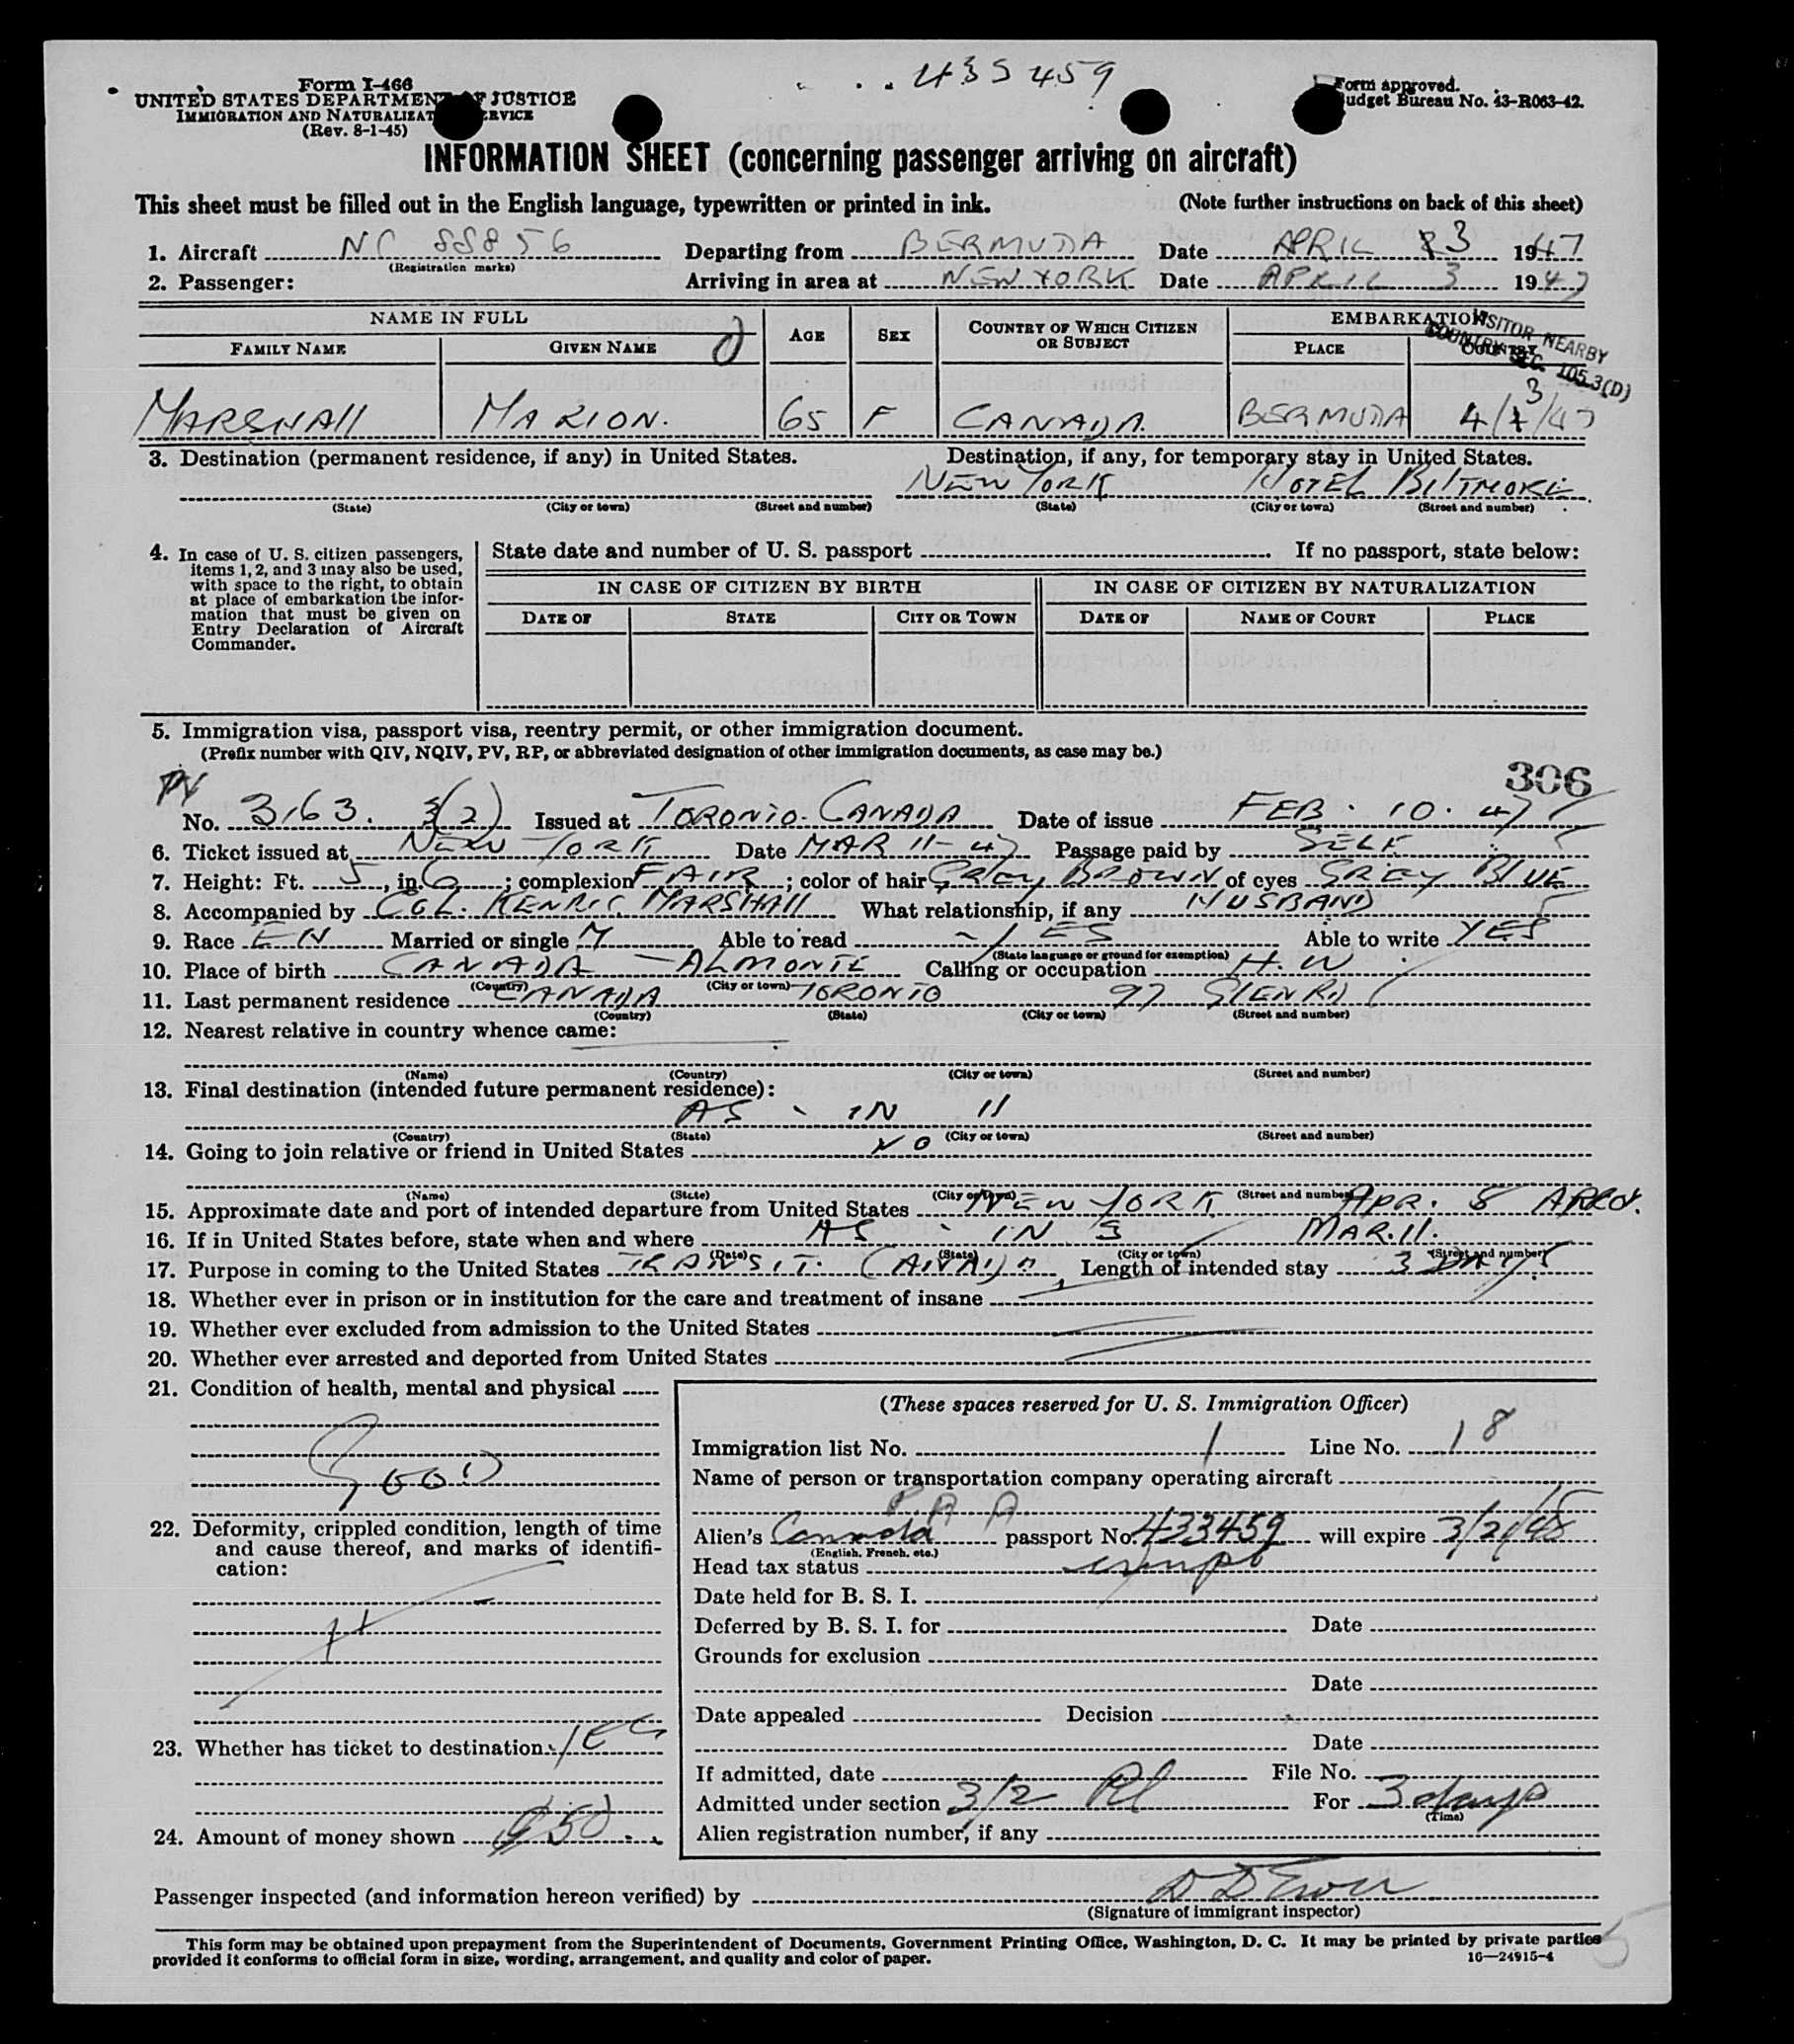 435459
Form I-466
UNITED STATES DEPARTMENT OF JUSTICE
IMMIGRATION AND NATURALIZATION SERVICE
(Rev. 8-1-45)
Form approved.
Budget Bureau No. 43-R063-42.
INFORMATION SHEET (concerning passenger arriving on aircraft)
This sheet must be filled out in the English language, typewritten or printed in ink. (Note further instructions on back of this sheet)
1. Aircraft NC 88856 Departing from BERMUDA Date APRIL 3 1947
(Registration marks)
2. Passenger: Arriving in area at NEW YORK Date APRIL 3 1947
NAME IN FULL AGE SEX COUNTRY OF WHICH CITIZEN OR SUBJECT EMBARKATION
FAMILY NAME GIVEN NAME PLACE COUNTRY
VISITOR NEARBY
COUNTRY SEC. 105.3(D)
MARSHAll MARION. 65 F CANADA. BERMUDA 4/3/47
3. Destination (permanent residence, if any) in United States. Destination, if any, for temporary stay in United States.
NEW YORK HOTEL BILTMORE
(State) (City or town) (Street and number) (State) (City or town) (Street and number)
4. In case of U. S. citizen passengers, items 1, 2, and 3 may also be used, with space to the right, to obtain at place of embarkation the information that must be given on Entry Declaration of Aircraft Commander.
State date and number of U. S. passport If no passport, state below:
IN CASE OF CITIZEN BY BIRTH IN CASE OF CITIZEN BY NATURALIZATION
DATE OF STATE CITY OR TOWN DATE OF NAME OF COURT PLACE
5. Immigration visa, passport visa, reentry permit, or other immigration document.
(Prefix number with QIV, NQIV, PV, RP, or abbreviated designation of other immigration documents, as case may be.)
306
PV
No. 3163. 3(2) Issued at TORONTO. CANADA Date of issue FEB. 10. 47
6. Ticket issued at NEW YORK Date MAR 11-47 Passage paid by SELF
7. Height: Ft. 5, in. 6; complexion FAIR; color of hair GREY BROWN of eyes GREY BLUE
8. Accompanied by COL. KENRIC MARSHAll What relationship, if any HUSBAND
9. Race EN Married or single M Able to read YES Able to write YES
(State language or ground for exemption)
10. Place of birth CANADA - ALMONTE Calling or occupation H.W
(Country) (City or town)
11. Last permanent residence CANADA TORONTO 97 GLEN RD
(Country) (State) (City or town) (Street and number)
12. Nearest relative in country whence came:
(Name) (Country) (City or town) (Street and number)
13. Final destination (intended future permanent residence):
AS - IN 11
(Country) (State) (City or town) (Street and number)
14. Going to join relative or friend in United States NO
(Name) (State) (City or town) (Street and number)
15. Approximate date and port of intended departure from United States NEW YORK APR. 8
16. If in United States before, state when and where AS - IN 3 MAR. 11.
(Date) (State) (City or town) (Street and number)
17. Purpose in coming to the United States TRANSIT. CANADA Length of intended stay 3 DAYS
18. Whether ever in prison or in institution for the care and treatment of insane
19. Whether ever excluded from admission to the United States
20. Whether ever arrested and deported from United States
21. Condition of health, mental and physical
GOOD
22. Deformity, crippled condition, length of time and cause thereof, and marks of identification:
23. Whether has ticket to destination YES
24. Amount of money shown $50.
(These spaces reserved for U. S. Immigration Officer)
Immigration list No. 1 Line No. 18
Name of person or transportation company operating aircraft
P. A A
Alien's Canada passport No. 433459 will expire
(English, French, etc.)
Head tax status exempt
Date held for B. S. I.
Deferred by B. S. I. for Date
Grounds for exclusion
Date
Date appealed Decision
Date
If admitted, date File No.
Admitted under section 3/2 For 3 days
(Time)
Alien registration number, if any
Passenger inspected (and information hereon verified) by
(Signature of immigrant inspector)
This form may be obtained upon prepayment from the Superintendent of Documents, Government Printing Office, Washington, D. C. It may be printed by private parties
provided it conforms to official form in size, wording, arrangement, and quality and color of paper. 16—24915-4